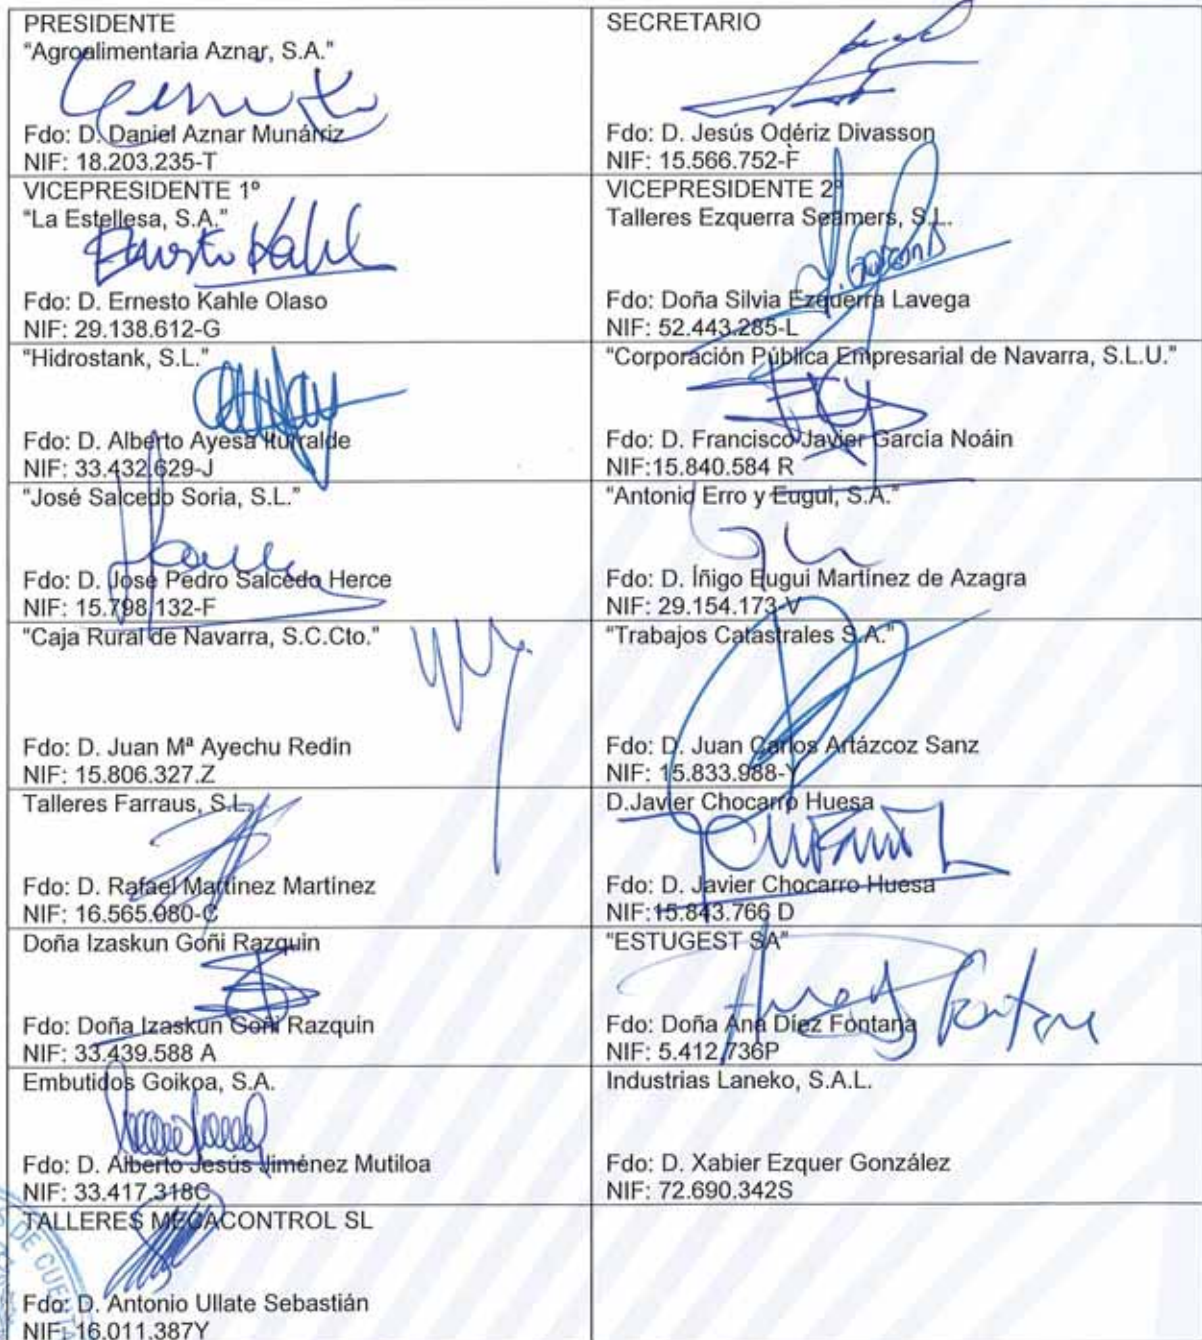 PRESIDENTE
"Agroalimentaria Aznar, S.A."
Fdo: D. Daniel Aznar Munárriz
NIF: 18.203.235-T
SECRETARIO
Fdo: D. Jesús Odériz Divasson
NIF: 15.566.752-F
VICEPRESIDENTE 1º
"La Estellesa, S.A."
Ernesto Kahle
Fdo: D. Ernesto Kahle Olaso
NIF: 29.138.612-G
VICEPRESIDENTE 2º
Talleres Ezquerra Seamers, S.L.
Fdo: Doña Silvia Ezquerra Lavega
NIF: 52.443.285-L
"Hidrostank, S.L."
Fdo: D. Alberto Ayesa Iturralde
NIF: 33.432.629-J
"Corporación Pública Empresarial de Navarra, S.L.U."
Fdo: D. Francisco Javier García Noáin
NIF:15.840.584 R
"José Salcedo Soria, S.L."
Fdo: D. José Pedro Salcedo Herce
NIF: 15.798.132-F
"Antonio Erro y Eugui, S.A."
Fdo: D. Íñigo Eugui Martínez de Azagra
NIF: 29.154.173-V
"Caja Rural de Navarra, S.C.Cto."
Fdo: D. Juan Mª Ayechu Redín
NIF: 15.806.327.Z
"Trabajos Catastrales S.A."
Fdo: D. Juan Carlos Artázcoz Sanz
NIF: 15.833.988-Y
Talleres Farraus, S.L.
Fdo: D. Rafael Martínez Martínez
NIF: 16.565.080-C
D.Javier Chocarro Huesa
Fdo: D. Javier Chocarro Huesa
NIF:15.843.766 D
Doña Izaskun Goñi Razquin
Fdo: Doña Izaskun Goñi Razquin
NIF: 33.439.588 A
"ESTUGEST SA"
Fdo: Doña Ana Díez Fontana
NIF: 5.412.736P
Embutidos Goikoa, S.A.
Fdo: D. Alberto Jesús Jiménez Mutiloa
NIF: 33.417.318C
Industrias Laneko, S.A.L.
Fdo: D. Xabier Ezquer González
NIF: 72.690.342S
TALLERES MEGACONTROL SL
Fdo: D. Antonio Ullate Sebastián
NIF: 16.011.387Y
DE CUENTA